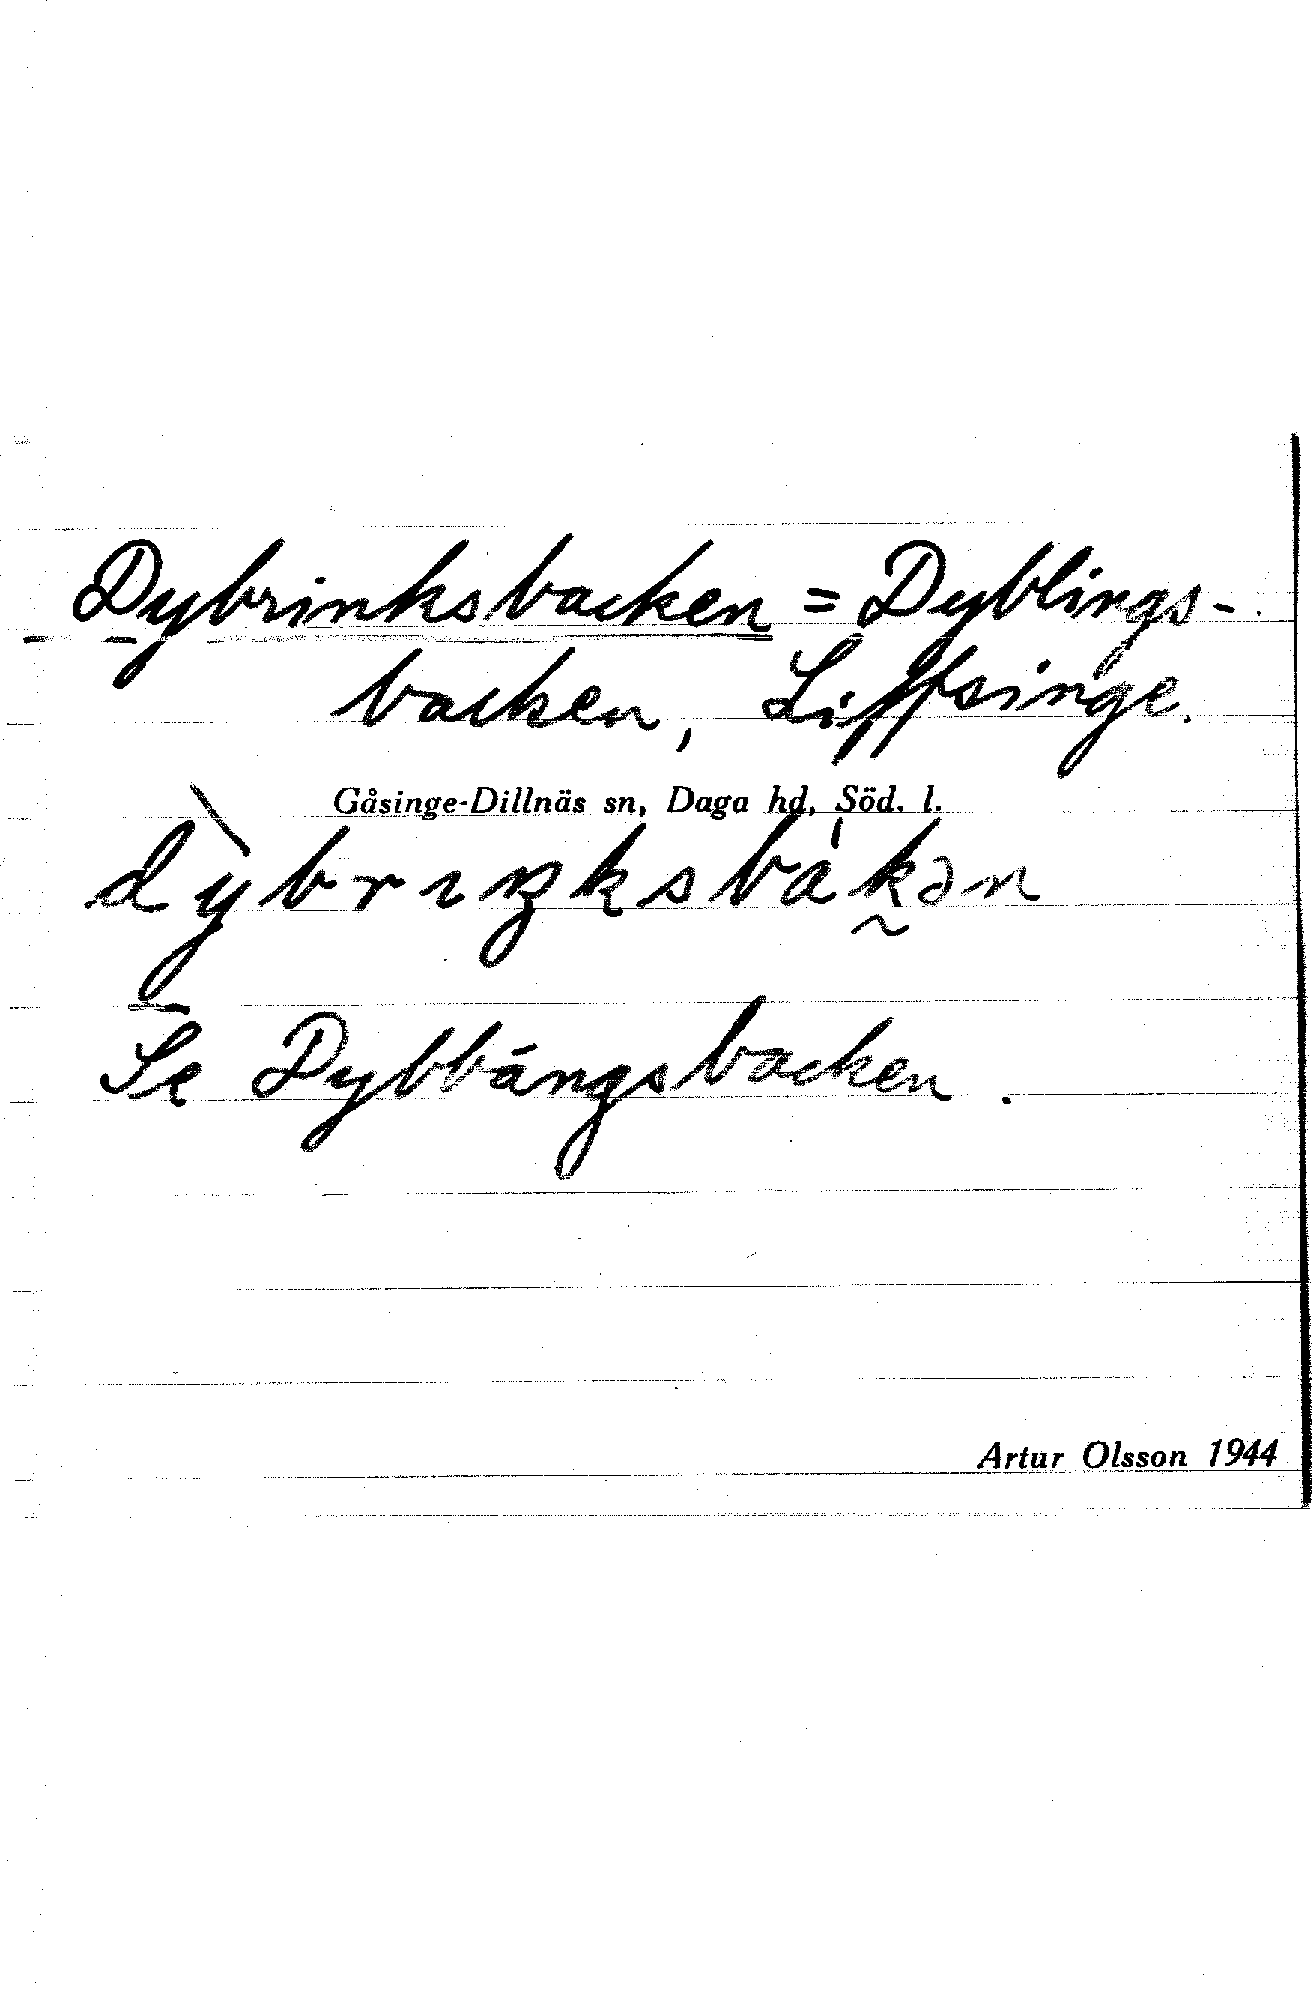 Dybrinksbacken = Dyblings-
backen, Liffsinge.
Gåsinge-Dillnäs sn, Daga hd, Söd. l.
dỳbrıŋksbák̰ən
Se Dybbängsbacken.
Artur Olsson 1944